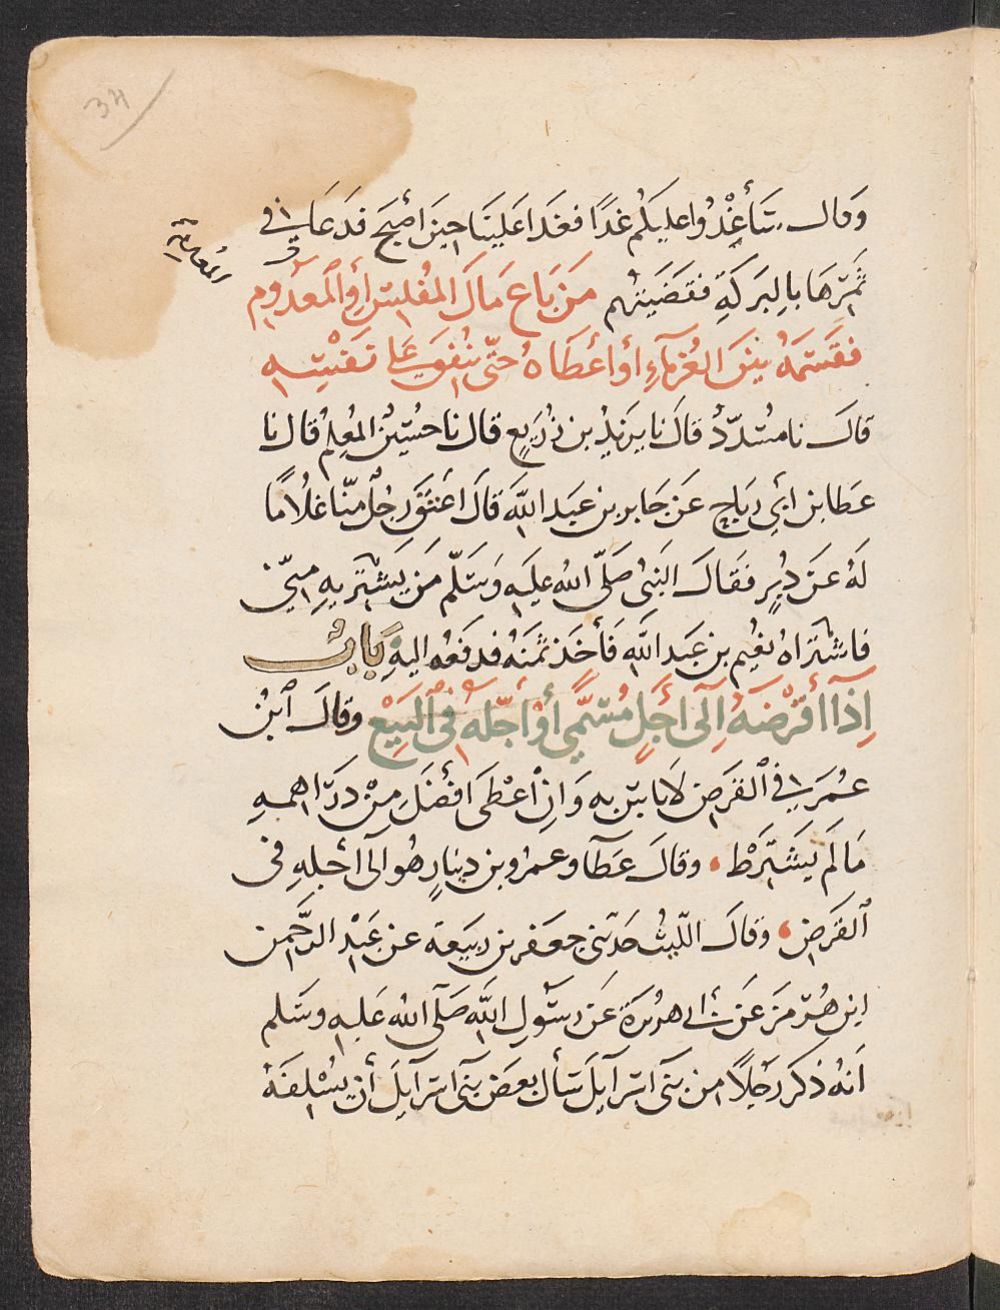 34
وَقال سَأَغْدُوا عليكم غدًا فغدَا عَلَينَا حِينَ أصْبَحَ فدَعَا في
ثمَرِهَا بالبرَكةِ فقضَيتهُم مَن بَاعَ مَالَ المُفلِسِ أوِ ٱلْمعدُومِ
فقسَمَهُ بَينَ الغُرمآءِ أوْ أعْطَاهُ حتّى يُنفِقَ عَلى نفسِهِ
قالَ نا مسُدّدٌ قالَ نا يزيدُ بن زُرَيعٍ قال نا حسُينٌ المُعلِمُ قال نا
عَطا بن أبي ربَاحٍ عَن جَابر بن عبَد اللَّه قالَ اعْتقَ رجُلٌ منّا غلُامًا
لهُ عَن دُبرٍ فقالَ النبَيُّ صَلّى اللهُ علَيهِ وَسَلّم مَن يَشْترِيهِ مِنّي
فاشترَاهُ نعُيم بن عَبد اللَّهِ فَأخَذ ثمَنَهُ فدفعَه اليهِ بَابُ
إذَآ أقْرَضَهُ إلى أجَلٍ مُسَمًّى أوْ أجّلَهُ في ٱلبَيْع وقالَ ٱبْنُ
عُمَرَ في ٱلقرَض لَا باسَ بهِ وَانِ أعْطَى افضَلَ مِنْ درَاهمِهِ
مَا لَم يَشترَطْ وقالَ عَطآ وعمرُو بن دينارٍ هُو الى أجَلهِ في
ٱلقرَضِ وَقالَ اللّيثُ حَدّثني جعفر بن ربيَعة عن عَبْد الرَّحْمن
ابن هُرمَز عَن أبي هريرَة عَن رسَول اللَّه صَلّى الله عَليهِ وسَلم
أنهُ ذكر رَجُلًا من بَني اسرآيلَ سَأل بعض بَني اسرآيلَ أن يُسْلِفَهُ